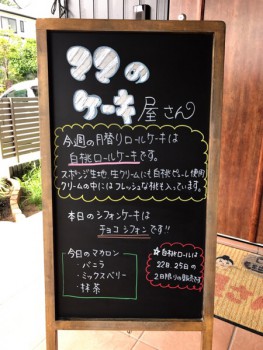 ママの
ケーキ屋さん
今週の月替りロールケーキは
白桃ロールケーキです。
スポンジ生地、生クリームにも白桃ピューレ使用
クリームの中にはフレッシュな桃も入っています。
本日のシフォンケーキは
チョコシフォンです!!
今日のマカロン
・バニラ
・ミックスベリー
・抹茶
☆白桃ロールは
22日、25日の
2日限りの販売です